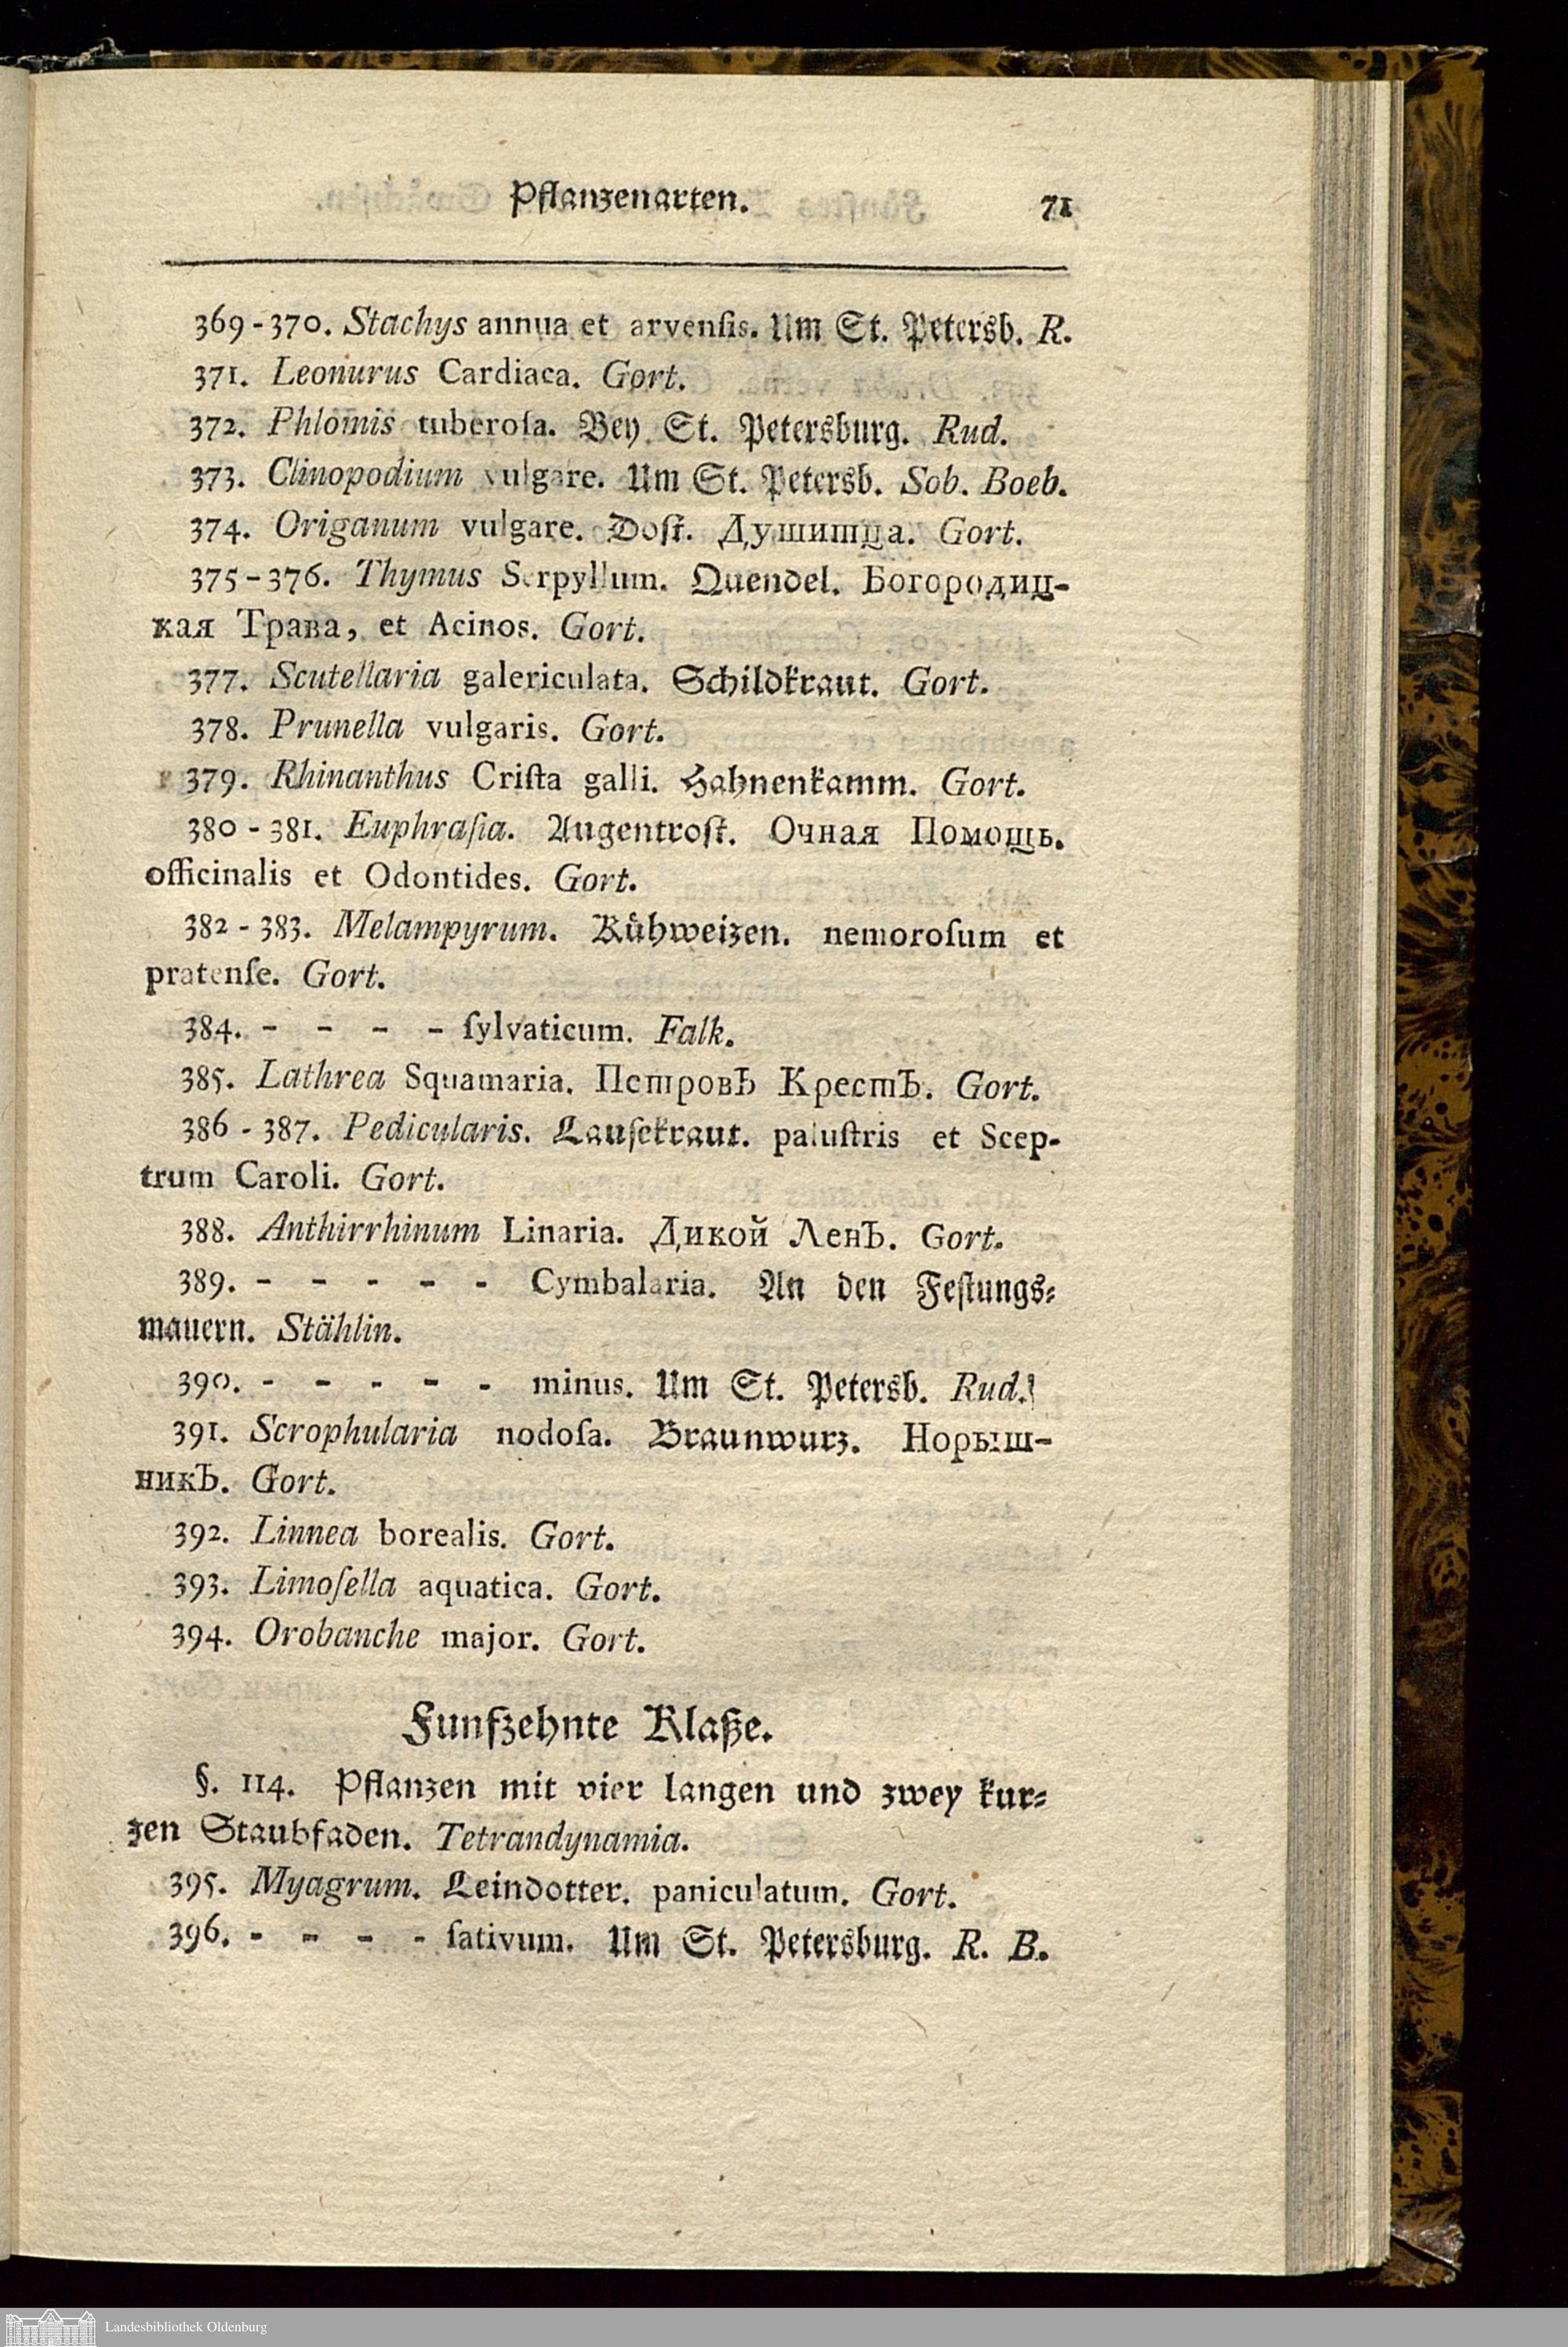 Pflanzenarten. 71
369-370. Stachys annua et arvenſis. Um St. Petersb. R.
371. Leonurus Cardiaca. Gort.
372. Phlomis tuberoſa. Bey St. Petersburg. Rud.
373. Clinopodium vulgare. Um St. Petersb. Sob. Boeb.
374. Origanum vulgare. Doſt. Душитца. Gort.
375-376. Thymus Serpyllum. Quendel. Богородиц-
кая Трава, et Acinos. Gort.
377. Scutellaria galericulata. Schildkraut. Gort.
378. Prunella vulgaris. Gort.
379. Rhinanthus Criſta galli. Hahnenkamm. Gort.
380-381. Euphraſia. Augentroſt. Очная Помощь.
officinalis et Odontides. Gort.
382-383. Melampyrum. Kühweizen. nemoroſum et
pratenſe. Gort.
384. - - - - ſylvaticum. Falk.
385. Lathrea Squamaria. Петровъ Крестъ. Gort.
386-387. Pedicularis. Lauſekraut. paluſtris et Scep-
trum Caroli. Gort.
388. Anthirrhinum Linaria. Дикой Ленъ. Gort.
389. - - - - - Cymbalaria. An den Feſtungs-
mauern. Stählin.
390. - - - - - minus. Um St. Petersb. Rud.
391. Scrophularia nodoſa. Braunwurz. Норыш-
никъ. Gort.
392. Linnea borealis. Gort.
393. Limoſella aquatica. Gort.
394. Orobanche major. Gort.
Funfzehnte Klaße.
§. 114. Pflanzen mit vier langen und zwey kur-
zen Staubfaden. Tetrandynamia.
395. Myagrum. Leindotter. paniculatum. Gort.
396. - - - - ſativum. Um St. Petersburg. R. B.
Landesbibliothek Oldenburg